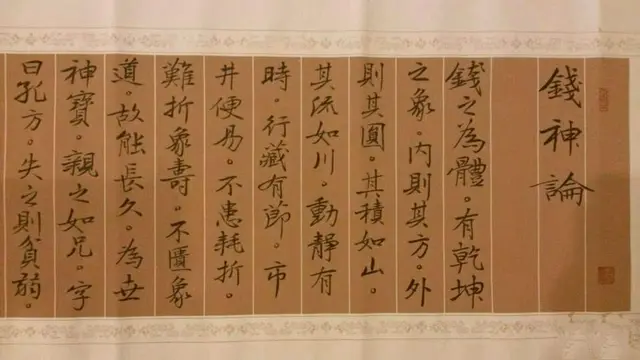 錢神論
錢之為體。有乾坤
之象。内則其方。外
則其圓。其積如山。
其流如川。動靜有
時。行藏有節。市
井便易。不患耗折。
難折象壽。不匱象
道。故能長久。為世
神寶。親之如兄。字
曰孔方。失之則貧弱。